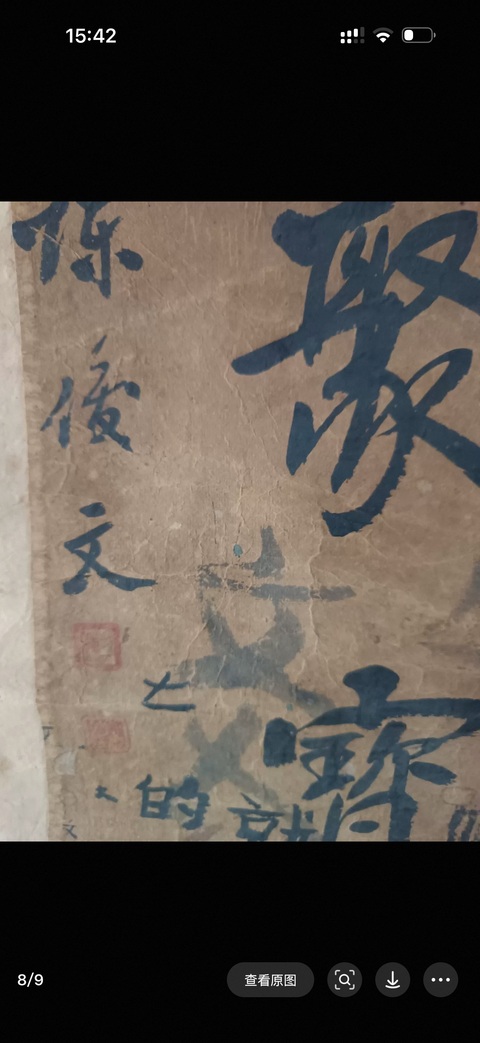 15:42
聚
寳
陈俊文
文
大
的
就
8/9
查看原图